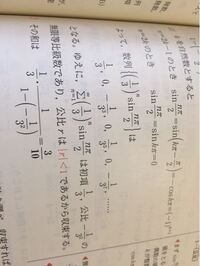 を自然数とすると
のとき sin nπ/2 = sin(kπ - π/2) = -cos kπ = (-1)
n=2kのとき sin nπ/2 = sin kπ = 0
よって，数列{(1/3)ⁿ sin nπ/2}は
1/3, 0, -1/3³, 0, 1/3⁵, 0, -1/3⁷, ……
となる。ゆえに，Σ(1/3)ⁿ sin nπ/2 は初項 1/3, 公比 -1/3² の
無限等比級数であり，公比rは |r|<1 であるから収束する。
その和は
1/3 · 1/(1-(-1/3²)) = 3/10